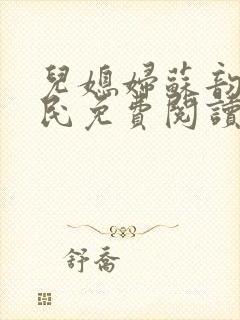 兒媳婦蘇韵
民免費閱讀
舒喬